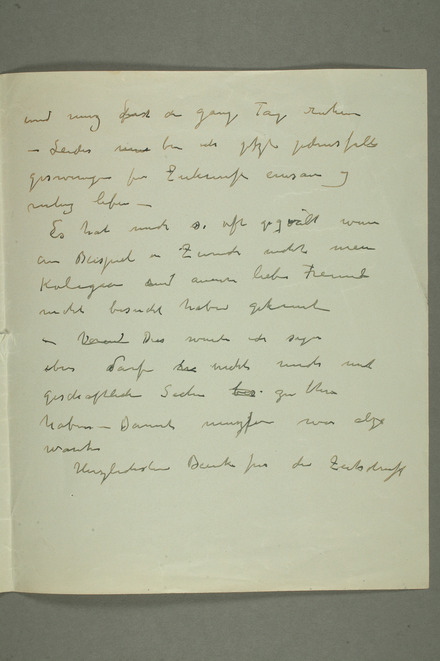 und muss fast den ganze Tag ruhen
– Leider bin ich jetzt jedenfalls
gezwungen für Zukunft einsam &
ruhig leben –
Es hat mich so oft gequält wenn
am Beispiel in Zürich nicht mein
Kolegen und anderen lieben Freund
nicht besucht haben gekonnt
– Dies wollte ich sagen
eben darf nichts mehr mit
geschäftliche Sachen zu thun
haben – Damit müssen wir also
warten
Herzlichsten Danke für die Zeitschrift